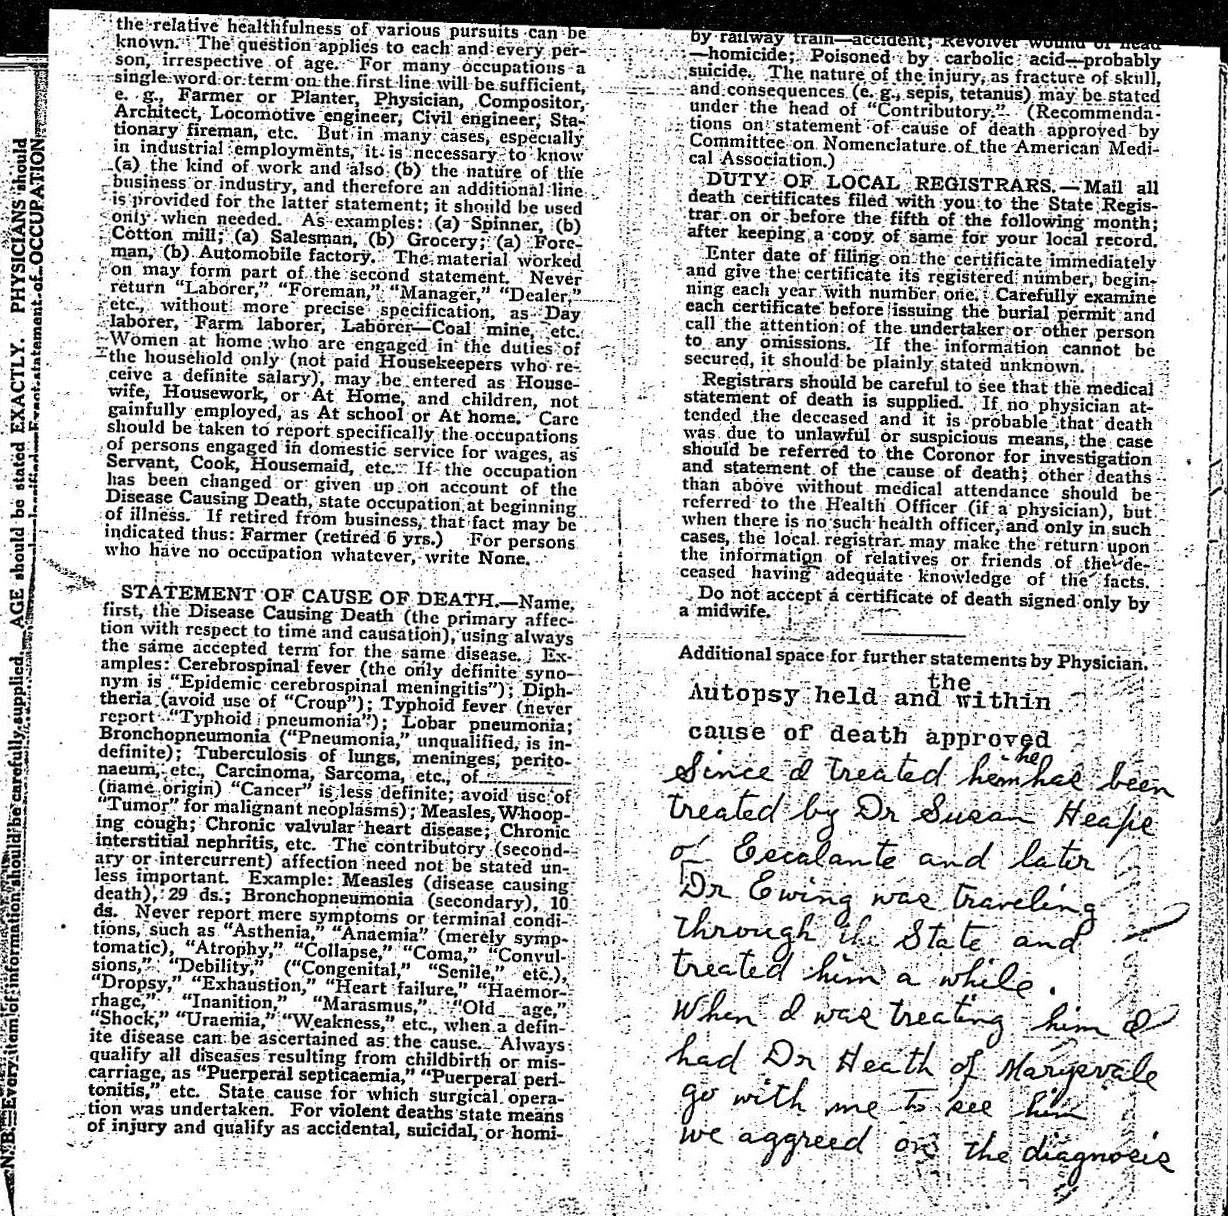 the relative healthfulness of various pursuits can be
known. The question applies to each and every per-
son, irrespective of age. For many occupations a
single word or term on the first line will be sufficient,
e. g., Farmer or Planter, Physician, Compositor,
Architect, Locomotive engineer, Civil engineer, Sta-
tionary fireman, etc. But in many cases, especially
in industrial employments, it is necessary to know
(a) the kind of work and also (b) the nature of the
business or industry, and therefore an additional line
is provided for the latter statement; it should be used
only when needed. As examples: (a) Spinner, (b)
Cotton mill; (a) Salesman, (b) Grocery; (a) Fore-
man, (b) Automobile factory. The material worked
on may form part of the second statement. Never
return "Laborer," "Foreman," "Manager," "Dealer,"
etc., without more precise specification, as Day
laborer, Farm laborer, Laborer—Coal mine, etc.
Women at home who are engaged in the duties of
the household only (not paid Housekeepers who re-
ceive a definite salary), may be entered as House-
wife, Housework, or At Home, and children, not
gainfully employed, as At school or At home. Care
should be taken to report specifically the occupations
of persons engaged in domestic service for wages, as
Servant, Cook, Housemaid, etc. If the occupation
has been changed or given up on account of the
Disease Causing Death, state occupation at beginning
of illness. If retired from business, that fact may be
indicated thus: Farmer (retired 6 yrs.) For persons
who have no occupation whatever, write None.
STATEMENT OF CAUSE OF DEATH.—Name,
first, the Disease Causing Death (the primary affec-
tion with respect to time and causation), using always
the same accepted term for the same disease. Ex-
amples: Cerebrospinal fever (the only definite syno-
nym is "Epidemic cerebrospinal meningitis"); Diph-
theria (avoid use of "Croup"); Typhoid fever (never
report "Typhoid pneumonia"); Lobar pneumonia;
Bronchopneumonia ("Pneumonia," unqualified, is in-
definite); Tuberculosis of lungs, meninges, perito-
naeum, etc., Carcinoma, Sarcoma, etc., of
(name origin) "Cancer" is less definite; avoid use of
"Tumor" for malignant neoplasms); Measles, Whoop-
ing cough; Chronic valvular heart disease; Chronic
interstitial nephritis, etc. The contributory (second-
ary or intercurrent) affection need not be stated un-
less important. Example: Measles (disease causing
death), 29 ds.; Bronchopneumonia (secondary), 10
ds. Never report mere symptoms or terminal condi-
tions, such as "Asthenia," "Anaemia" (merely symp-
tomatic), "Atrophy," "Collapse," "Coma," "Convul-
sions," "Debility," ("Congenital," "Senile," etc.),
"Dropsy," "Exhaustion," "Heart failure," "Haemor-
rhage," "Inanition," "Marasmus," "Old age,"
"Shock," "Uraemia," "Weakness," etc., when a defin-
ite disease can be ascertained as the cause. Always
qualify all diseases resulting from childbirth or mis-
carriage, as "Puerperal septicaemia," "Puerperal peri-
tonitis," etc. State cause for which surgical opera-
tion was undertaken. For violent deaths state means
of injury and qualify as accidental, suicidal, or homi-
by railway train—accident; Revolver wound of head
—homicide; Poisoned by carbolic acid—probably
suicide. The nature of the injury, as fracture of skull,
and consequences (e. g., sepsis, tetanus) may be stated
under the head of "Contributory." (Recommenda-
tions on statement of cause of death approved by
Committee on Nomenclature of the American Medi-
cal Association.)
DUTY OF LOCAL REGISTRARS.—Mail all
death certificates filed with you to the State Regis-
trar on or before the fifth of the following month;
after keeping a copy of same for your local record.
Enter date of filing on the certificate immediately
and give the certificate its registered number, begin-
ning each year with number one. Carefully examine
each certificate before issuing the burial permit and
call the attention of the undertaker or other person
to any omissions. If the information cannot be
secured, it should be plainly stated unknown.
Registrars should be careful to see that the medical
statement of death is supplied. If no physician at-
tended the deceased and it is probable that death
was due to unlawful or suspicious means, the case
should be referred to the Coronor for investigation
and statement of the cause of death; other deaths
than above without medical attendance should be
referred to the Health Officer (if a physician), but
when there is no such health officer, and only in such
cases, the local registrar may make the return upon
the information of relatives or friends of the de-
ceased having adequate knowledge of the facts.
Do not accept a certificate of death signed only by
a midwife.
Additional space for further statements by Physician.
the
Autopsy held and within
cause of death approved
he
Since I treated him has been
treated by Dr Susan Heape
of Escalante and later
Dr Ewing was traveling
through the State and
treated him a while.
When I was treating him I
had Dr Heath of Marysvale
go with me to see him
we aggreed on the diagnosis
N. B.—Every item of information should be carefully supplied. AGE should be stated EXACTLY. PHYSICIANS should
classified. Exact statement of OCCUPATION